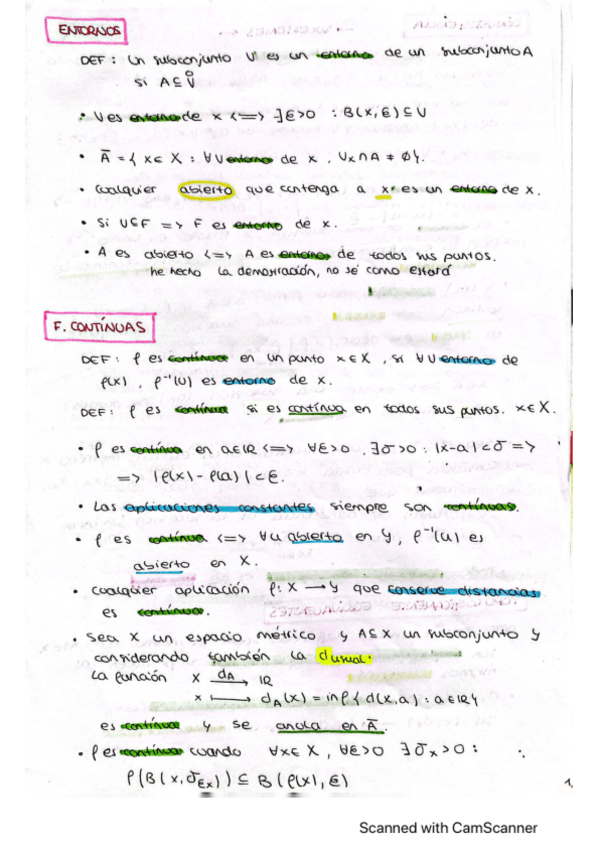 ENTORNOS
DEF: Un subconjunto U es un entorno de un subconjunto A
si A ⊆ Ů
• U es entorno de x <=> ∃ε>0 : B(x,ε) ⊆ U
• Ā = { x ∈ X : ∀ U entorno de x, Ux ∩ A ≠ ∅ }.
• Cualquier abierto que contenga a "x" es un entorno de x.
• Si U⊆F => F es entorno de x.
• A es abierto <=> A es entorno de todos sus puntos.
he hecho la demostración, no sé como estará
F. CONTÍNUAS
DEF: f es contínua en un punto x∈X, si ∀ U entorno de
f(x), f⁻¹(U) es entorno de x.
DEF: f es contínua si es contínua en todos sus puntos. x∈X.
• f es contínua en a∈IR <=> ∀ε>0, ∃δ>0 : |x-a|<δ =>
=> |f(x) - f(a)| < ε.
• Las aplicaciones constantes siempre son contínuas.
• f es contínua <=> ∀ U abierto en Y, f⁻¹(U) es
abierto en X.
• Cualquier aplicación f: X → Y que conserve distancias
es contínua.
• Sea X un espacio métrico y A⊆X un subconjunto y
considerando también la d usual.
La función X d_A → IR
x ↦ d_A(x) = inf { d(x,a) : a∈IR }
es contínua y se anula en Ā.
• f es contínua cuando ∀x∈X, ∀ε>0 ∃δx>0 :
f(B(x,δεx)) ⊆ B(f(x),ε)
1.
Scanned with CamScanner